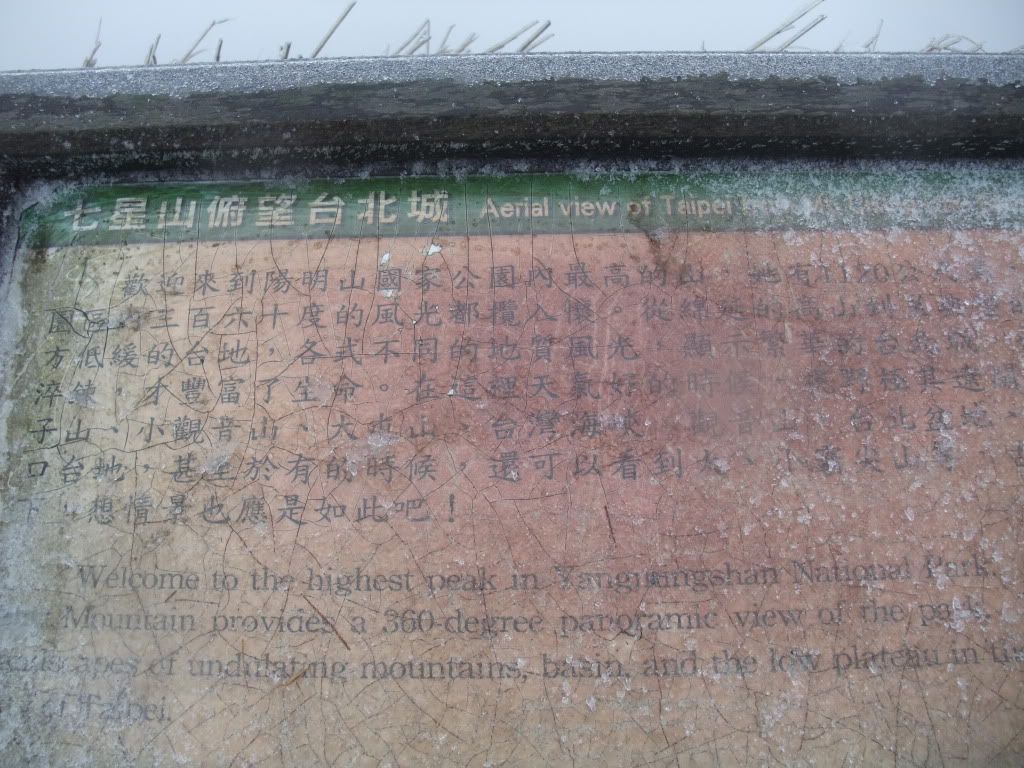 七星山俯望台北城 Aerial view of Taipei
歡迎來到陽明山國家公園內最高的山，她有1120公
園區的三百六十度的風光都攬入懷。從綿延的高山到
方低緩的台地，各式不同的地質風光，顯示繁華的台北城，
淬鍊，才豐富了生命。在這裡天氣好的時候，視野極其遼闊
子山、小觀音山、大屯山、台灣海峽、觀音山、台北盆地、
口台地，甚至於有的時候，還可以看到大、小霸尖山等，
下，想情景也應是如此吧！
Welcome to the highest peak in Yangmingshan National Park.
Mountain provides a 360-degree panoramic view of the park.
of undulating mountains, basin, and the low plateau in
of Taipei.